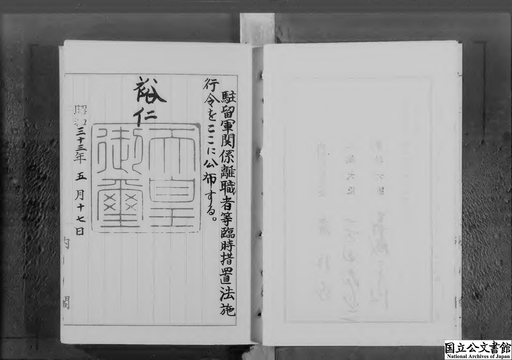 駐留軍関係離職者等臨時措置法施
行令をここに公布する。
裕仁
天皇
御璽
昭和三十三年五月十七日
内閣
国立公文書館
National Archives of Japan